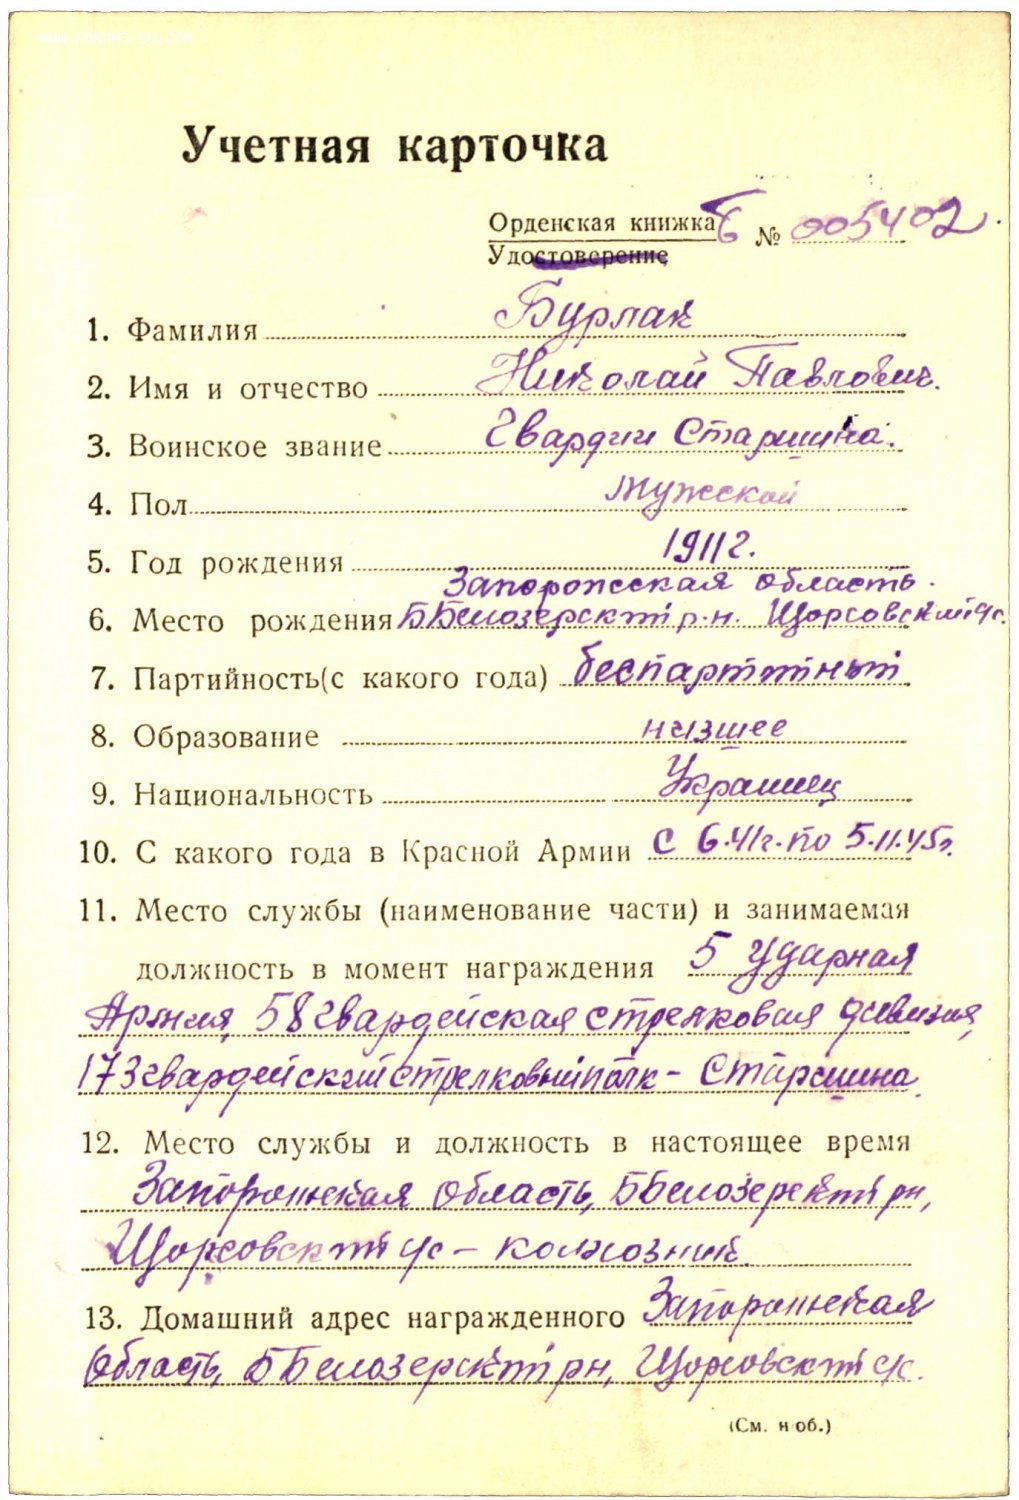 Учетная карточка
Орденская книжка Б № 005402.
Удостоверение
1. Фамилия Бурлак
2. Имя и отчество Николай Павлович.
3. Воинское звание Гвардии Старшина.
4. Пол Мужской
5. Год рождения 1911 г.
Запорожская область.
6. Место рождения ББелозерский р-н. Щорсовский с/с.
7. Партийность (с какого года) беспартийный
8. Образование низшее
9. Национальность Украинец
10. С какого года в Красной Армии с 6.41г. по 5.11.45г.
11. Место службы (наименование части) и занимаемая
должность в момент награждения 5 ударная
Армия, 58 гвардейская стрелковая дивизия,
173 гвардейский стрелковый полк – Старшина.
12. Место службы и должность в настоящее время
Запорожская область, ББелозерский рн,
Щорсовский с/с – колхозник.
13. Домашний адрес награжденного Запорожская
область, ББелозерский рн, Щорсовский с/с.
(См. н об.)